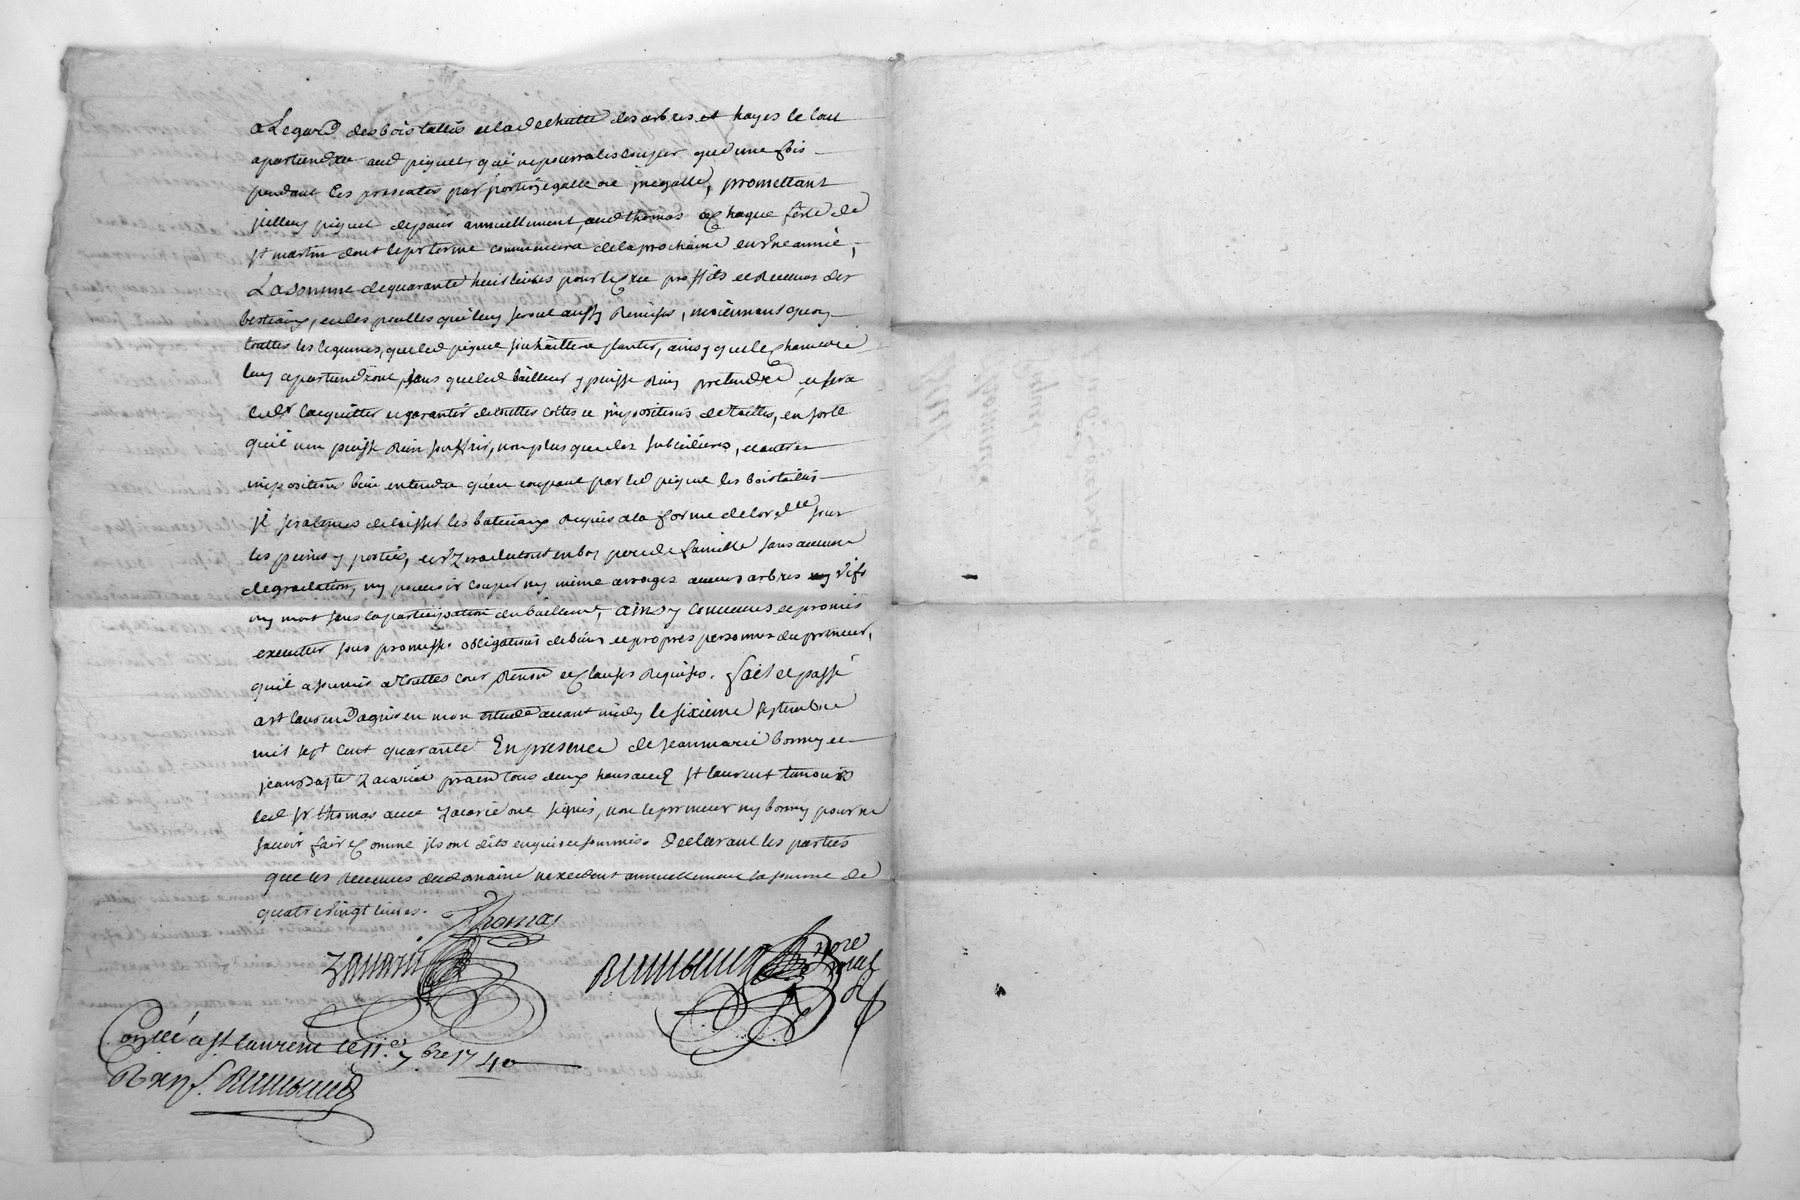 a Legard des bois taillis et la de des arbres et hayes le tout
apartiendra aud piquet, qui ne pourra les couper que une fois
pendant les presentes par portion egalle ou inegalle, promettant
icelluy piquet de payer annuellement, aud thomas a chaque fête de
st martin dont le pr terme commencera de la prochaine en une année,
La somme de quarante huit livres pour le profits et revenus des
bestiaux, et les poulles qui luy seront aussy remises, moiennant quoy
touttes les legumes, que led piquet souhaittera planter, ainsy que le chanvre
luy apartiendront, sans que led bailleur y puisse rien pretendre, et sera
led sr l'acquitter et garantir de touttes cottes et impositions de tailles, en sorte
qu'il n'en puisse rien souffrir, non plus que des subcides, et autres
impositions bien entendu qu'en coupant par led piquet les bois taillis
il sera tenus de laisser les baliveaux requis a la forme de lordce sous
les peines y portés, et usera de tout en bon pere de famille sans aucune
degradation, ny pouvoir couper ny même arracher aucuns arbres ny vifs
ny mort sans la participation du bailleur, ainsy convenus et promis
executer sous promesses obligations de biens et propres personnes du preneur,
qu'il a soumis a touttes cour et clauses requises. fait et passé
a st laurend en mon etude avant midy le sixieme septembre
mil sept cent quarante En presence de jean marie bonny et
jean bapte zacarie tous deux de st laurent temoins
led sr thomas avec zacarie ont signés, non le preneur ny bonny pour ne
scavoir faire comme ils ont dits enquis et sommés. declarant les parties
que les revenus du domaine n'excedent annuellement la somme de
quatre vingt livres.
Thomas
zacarie
nore
royal
a st laurent le 11e 7bre 1740